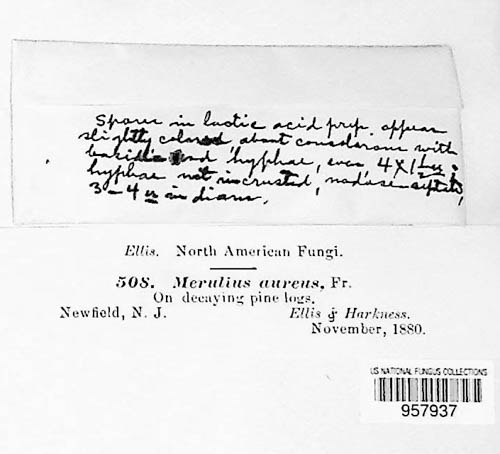 Spores in lactic acid prep. appear
slightly colored about concolorous with
basidia and hyphae, even, 4 X
hyphae not incrusted, nodose-septate,
3-4 u in diam.
Ellis. North American Fungi.
508. Merulius aureus, Fr.
On decaying pine logs.
Newfield, N. J. Ellis & Harkness.
November, 1880.
US NATIONAL FUNGUS COLLECTIONS
957937